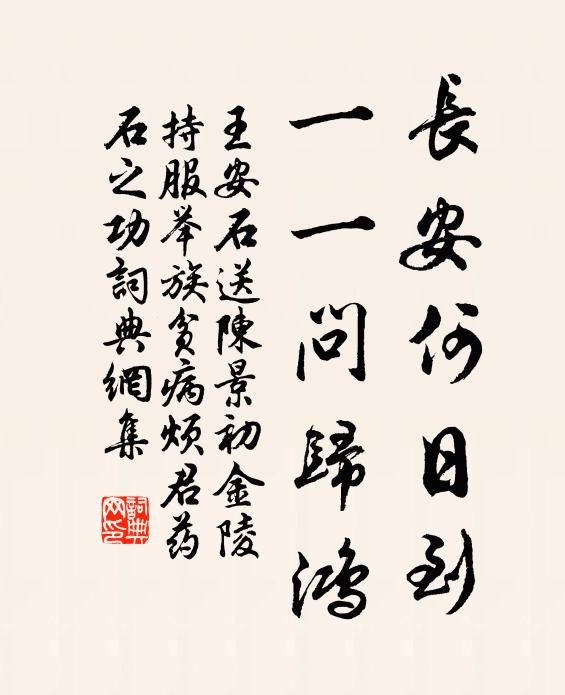 長安何日到
一一問歸鴻
王安石送陳景初金陵
持服举族貧病烦君药
石之功詞典網集
詞典网印